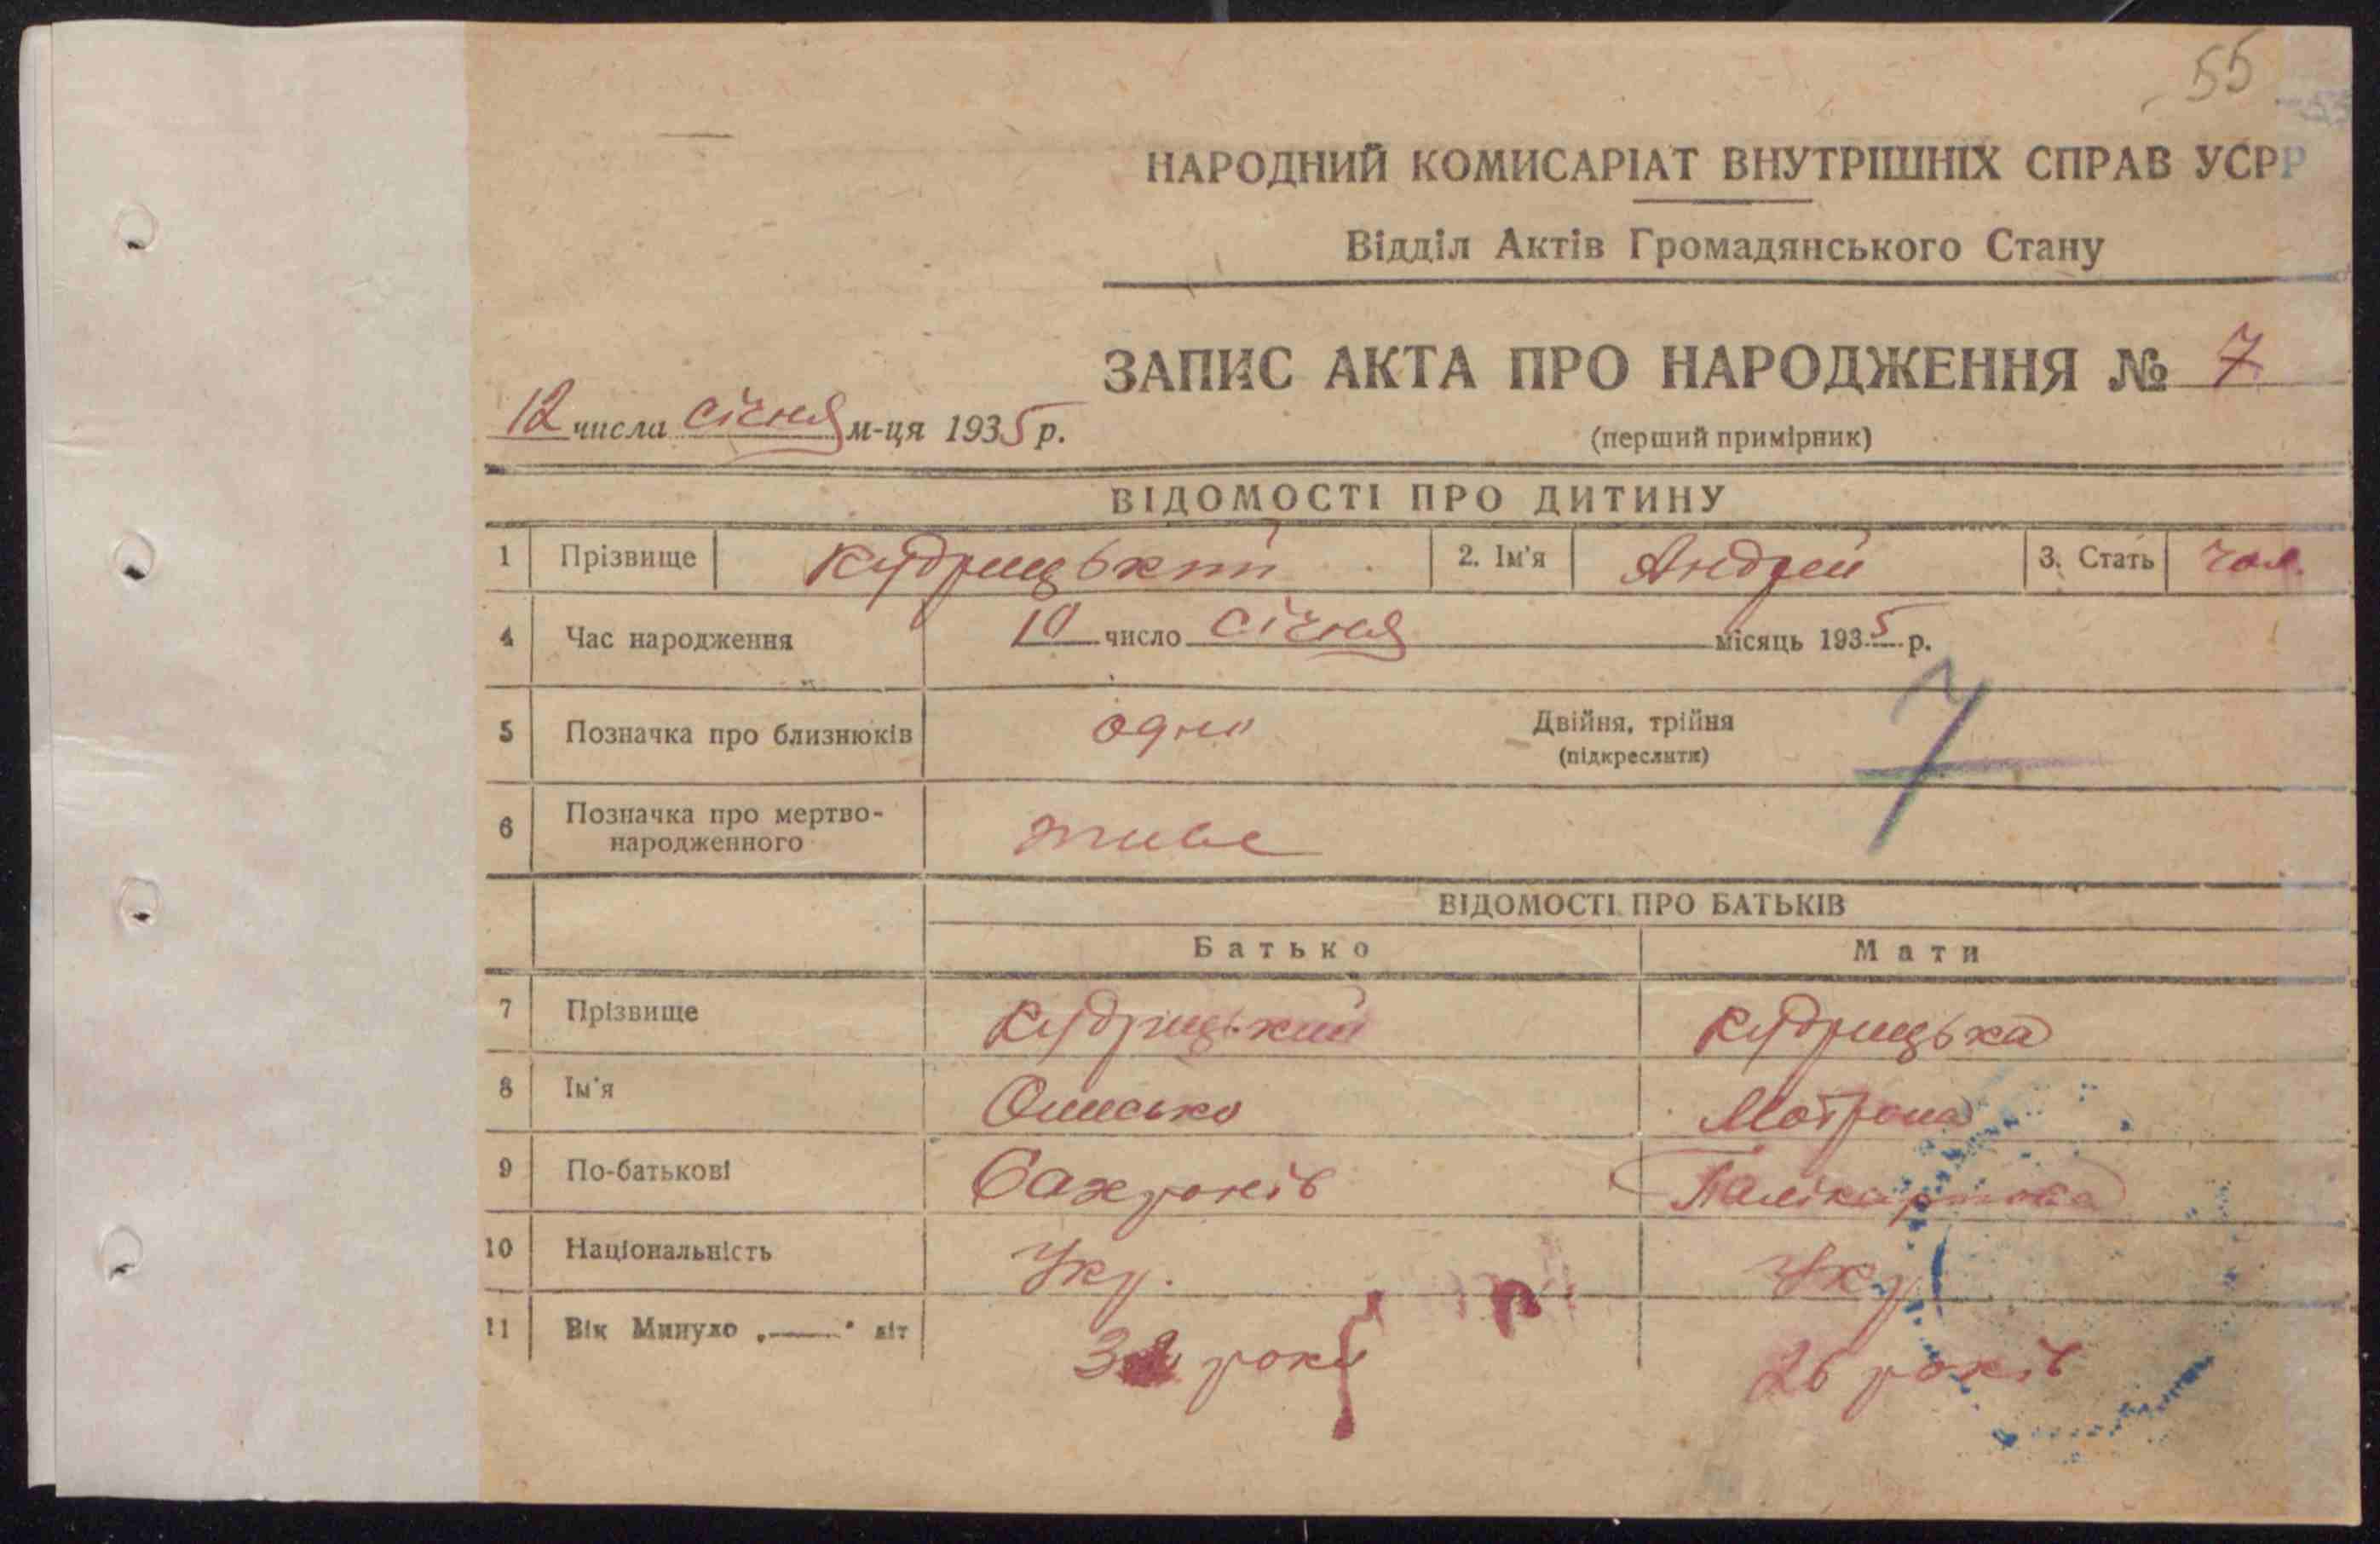 55
НАРОДНИЙ КОМИСАРІАТ ВНУТРІШНІХ СПРАВ УСРР
Відділ Актів Громадянського Стану
ЗАПИС АКТА ПРО НАРОДЖЕННЯ № 7
12 числа січня м-ця 1935 р.
(перший примірник)
ВІДОМОСТІ ПРО ДИТИНУ
1 Прізвище Кудрицький 2. Ім'я Андрей 3. Стать чол.
4 Час народження 10 число січня місяць 1935 р.
5 Позначка про близнюків одно Двійня, трійня
(підкреслити)
7
6 Позначка про мертво-
народженного живе
ВІДОМОСТІ ПРО БАТЬКІВ
Батько Мати
7 Прізвище Кудрицький Кудрицька
8 Ім'я Онисько Мотрона
9 По-батькові
10 Національність Укр. Укр
11 Вік Минуло „——" літ роки 26 років